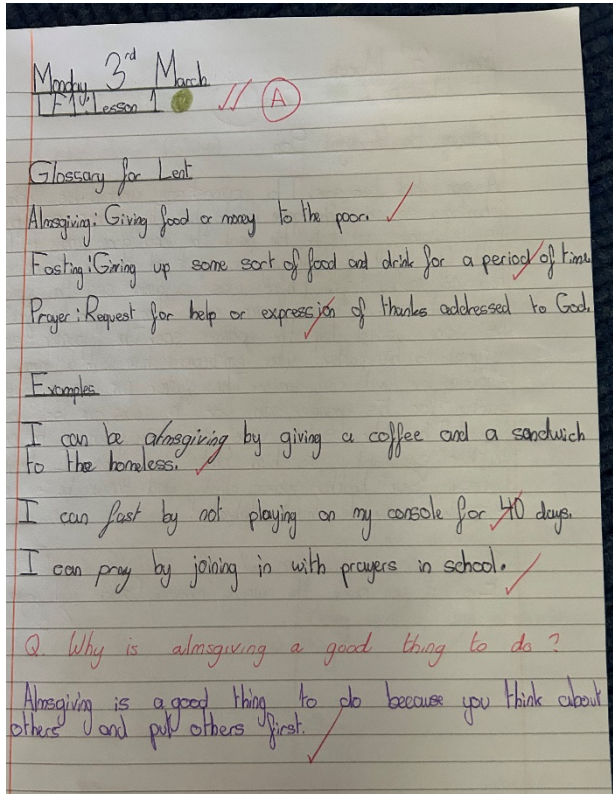 Monday 3rd March
LF1: Lesson 1 A
Glossary for Lent
Almsgiving: Giving food or money to the poor.
Fasting: Giving up some sort of food and drink for a period of time
Prayer: Request for help or expression of thanks addressed to God.
Examples
I can be almsgiving by giving a coffee and a sandwich
to the homeless.
I can fast by not playing on my console for 40 days.
I can pray by joining in with prayers in school.
Q. Why is almsgiving a good thing to do?
Almsgiving is a good thing to do because you think about
others and put others first.